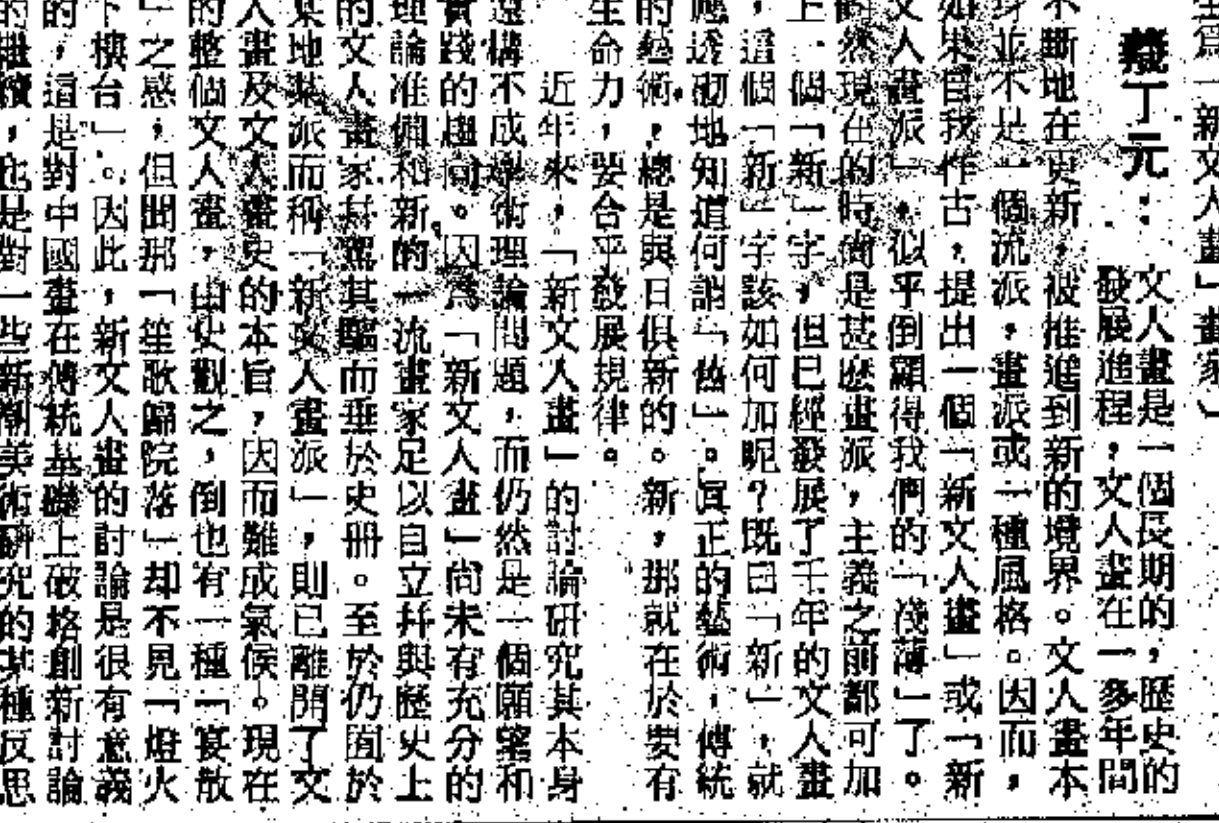 爲一新文人畫」畫家」
丁元： 文人畫是一個長期的，歷史的
發展進程，文人畫在一多年間
不斷地在更新，被推進到新的境界。文人畫本
身並不是一個流派，畫派或一種風格。因而，
如果自我作古，提出一個「新文人畫」或「新
文人畫派」，似乎倒顯得我們的「淺薄」了。
然現在的時尚是甚麽畫派，主義之前都可加
上一個「新」字，但已經發展了千年的文人畫
，這個「新」字該如何加呢？既曰「新」，就
應透砌地知道何謂「舊」。眞正的藝術，傳統
的藝術，總是與日俱新的。新，那就在於要有
生命力，要合乎發展規律。
近年來，「新文人畫」的討論研究其本身
還構不成學術理論問題，而仍然是一個願望和
實踐的趨向。因爲「新文人畫」尚未有充分的
理論准備和新的一流畫家足以自立幷與歷史上
的文人畫家其駕其驅而垂於史册。至於仍囿於
某地某派而稱「新文人畫派」，則已離開了文
人畫及文人畫史的本旨，因而難成氣候。現在
的整個文人畫，由史觀之，倒也有一種「宴散
」之感，但聞那「笙歌歸院落」却不見「燈火
下樓台」。因此，新文人畫的討論是很有意義
的，這是對中國畫在傳統基礎上破格創新討論
的繼續，也是對一些新潮美術研究的某種反思